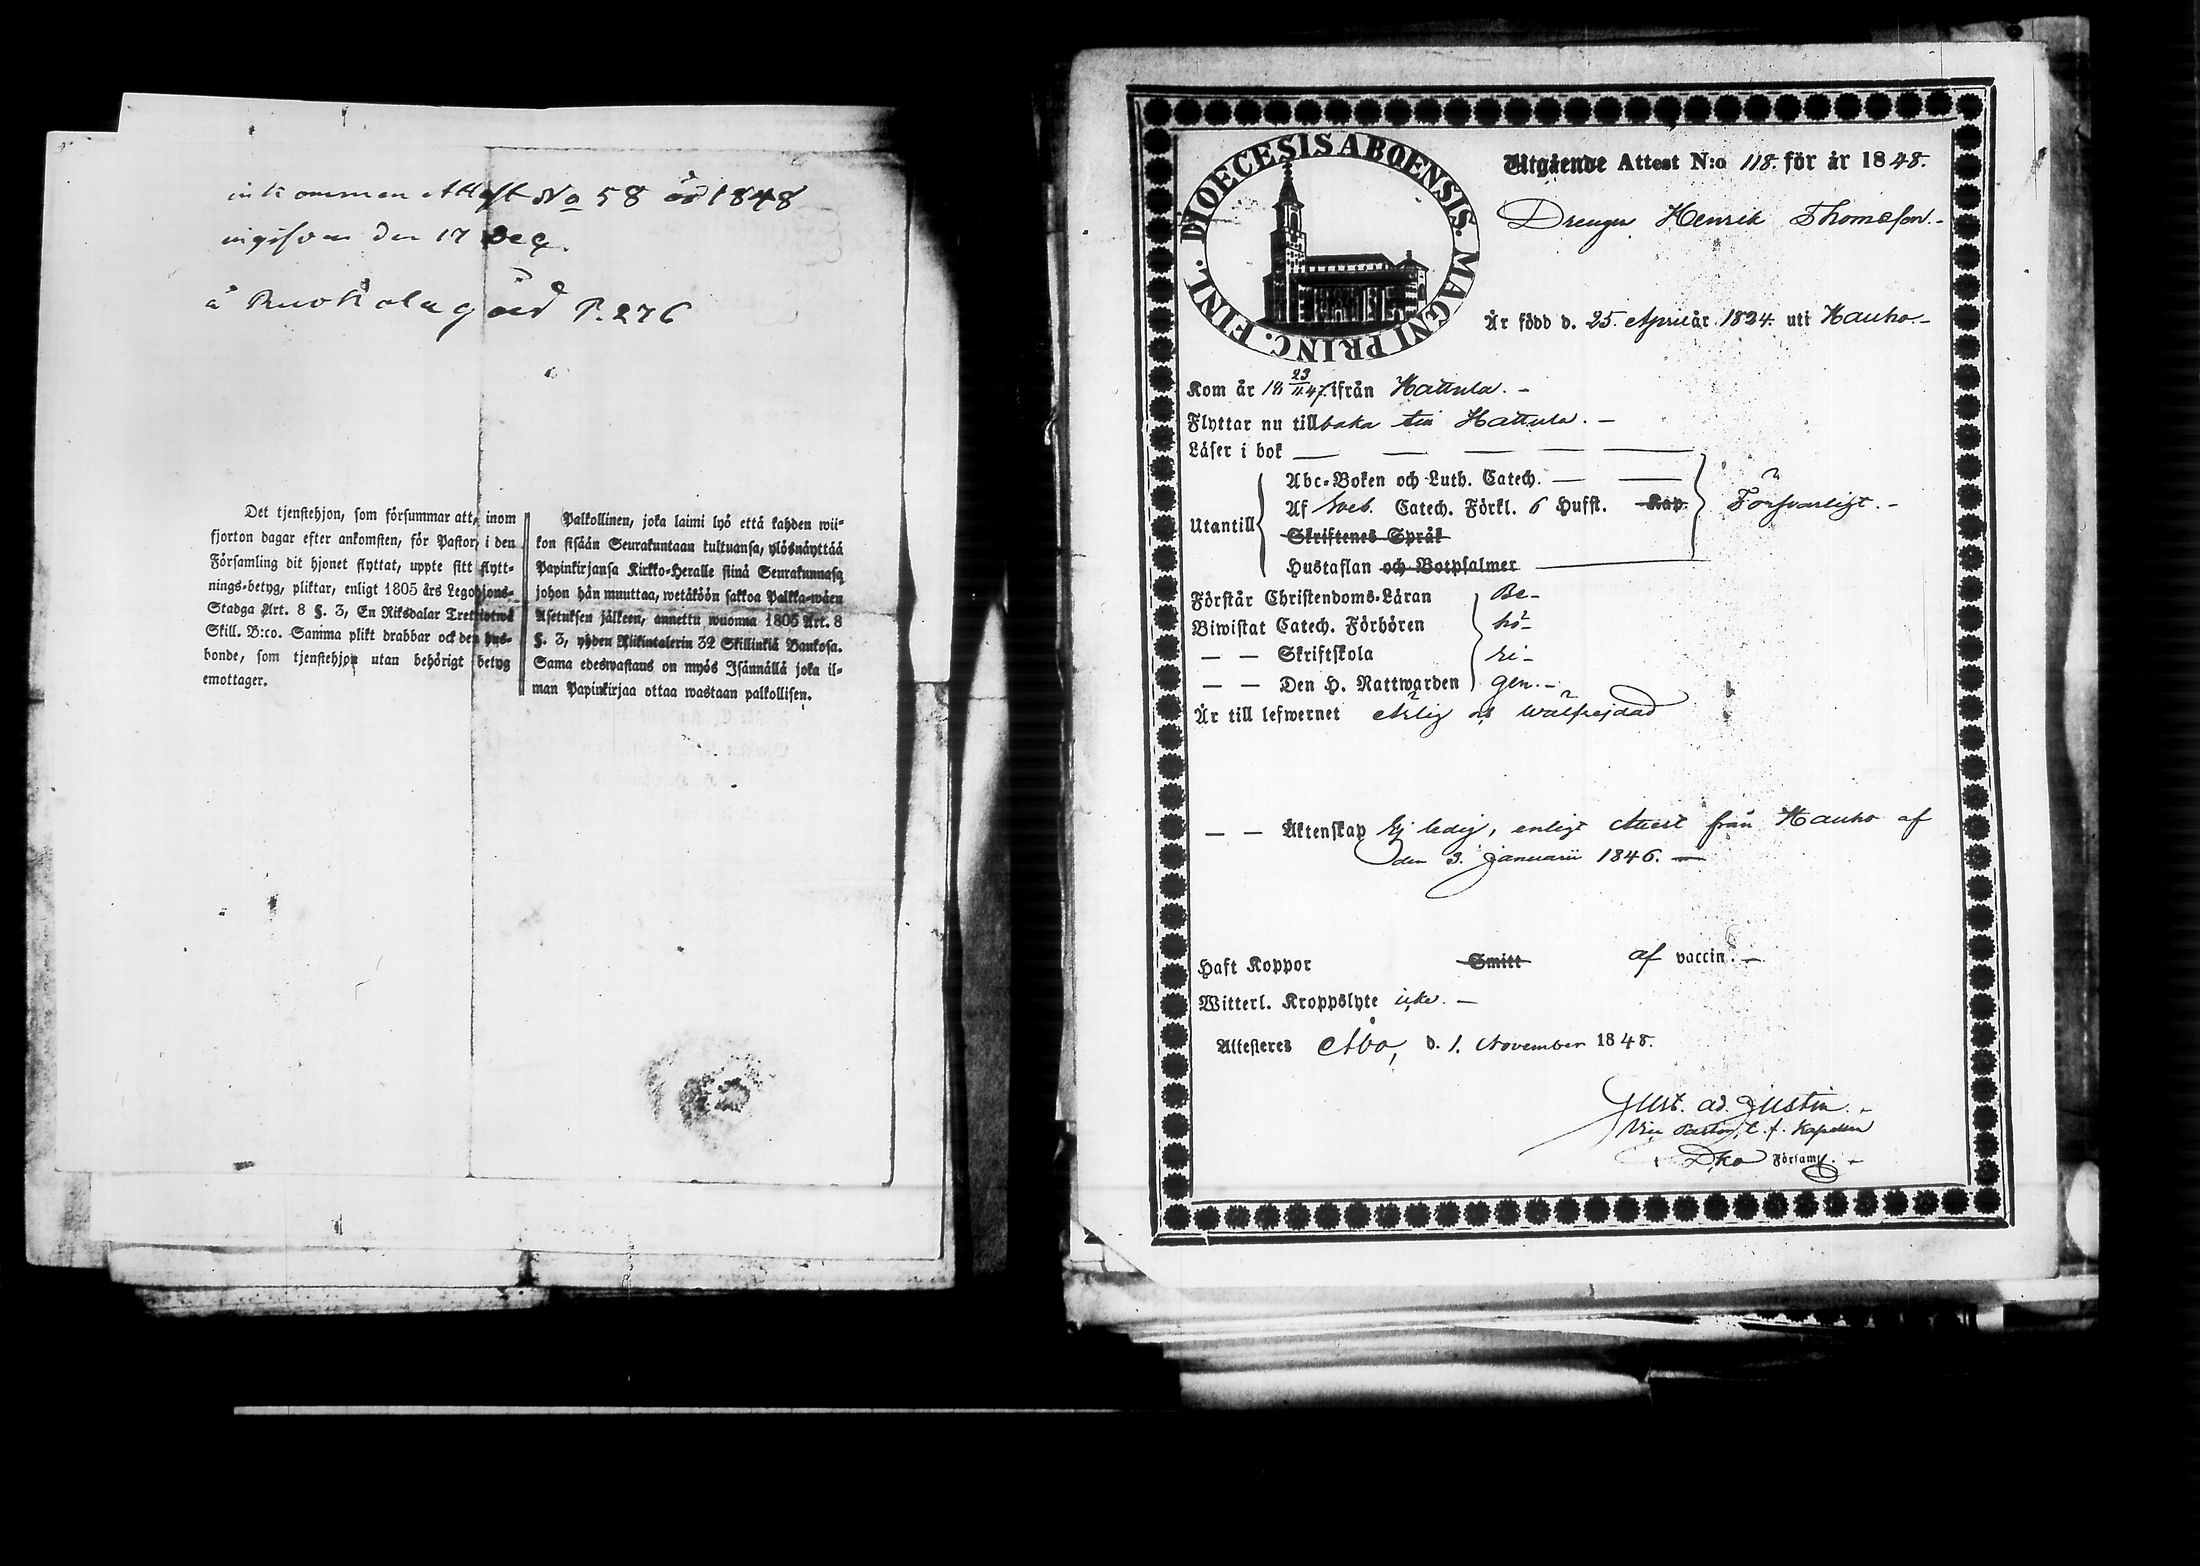 inkommen Attest No 58 år 1848
ingifven den 17 Dec.
å Ruokola gård P. 276
Det tjenstehjon, som försummar att, inom
fjorton dagar efter ankomsten, för Pastor i den
Församling dit hjonet flyttat, uppte sitt flytt-
nings-betyg, pliktar, enligt 1805 års Legohjons-
Stadga Art. 8 §. 3, En Riksdalar Trettiotwå
Skill. B:co. Samma plikt drabbar ock den hus-
bonde, som tjenstehjon utan behörigt betyg
emottager.
Palkollinen, joka laimi lyö että kahden wii-
kon sisään Seurakuntaan tultuansa, ylösnäyttää
Papinkirjansa Kirkko-Heralle siinä Seurakunnasa
johon hän muuttaa, wetäköön sakkoa Palkka-wäen
Asetuksen jälkeen, annettu wuonna 1805 Art. 8
§. 3, yhden Riikintalerin 32 Skillinkiä Bankosa.
Sama edeswastaus on myös Isännällä joka il-
man Papinkirjaa ottaa wastaan palkollisen.
DIOECESIS ABOENSIS. MAGNI PRINC. FINL.
Utgående Attest N:o 118. för år 1848.
Drengen Henrik Thomasson.-
Är född d. 25. April år 1824. uti Hauho.-
Kom år 18 23/11 47. ifrån Hattula. -
Flyttar nu tillbaka till Hattula. -
Läser i bok — — — — —
Utantill
Abc-Boken och Luth. Catech. — —
Af Sveb. Catech. Förkl. 6 Hufst. Kap.
Skriftenes Språk
Hustaflan och Botpsalmer
Försvarligt. -
Förstår Christendoms-Läran Be-
Biwistat Catech. Förhören hö-
— — Skriftskola ri-
— — Den H. Nattwarden gen.-
Är till lefwernet Ärlig och wälfrejdad
— — Äktenskap Ej ledig, enligt Attest från Hauho af
den 3. Januarii 1846. —
Haft Koppor Smitt af vaccin. —
Witterl. Kroppslyte icke. —
Attesteres Åbo, d. 1. November 1848.
Gust. Ad. Justin. -
Vice Pastor, t. f. Kapellan
i Församl. -